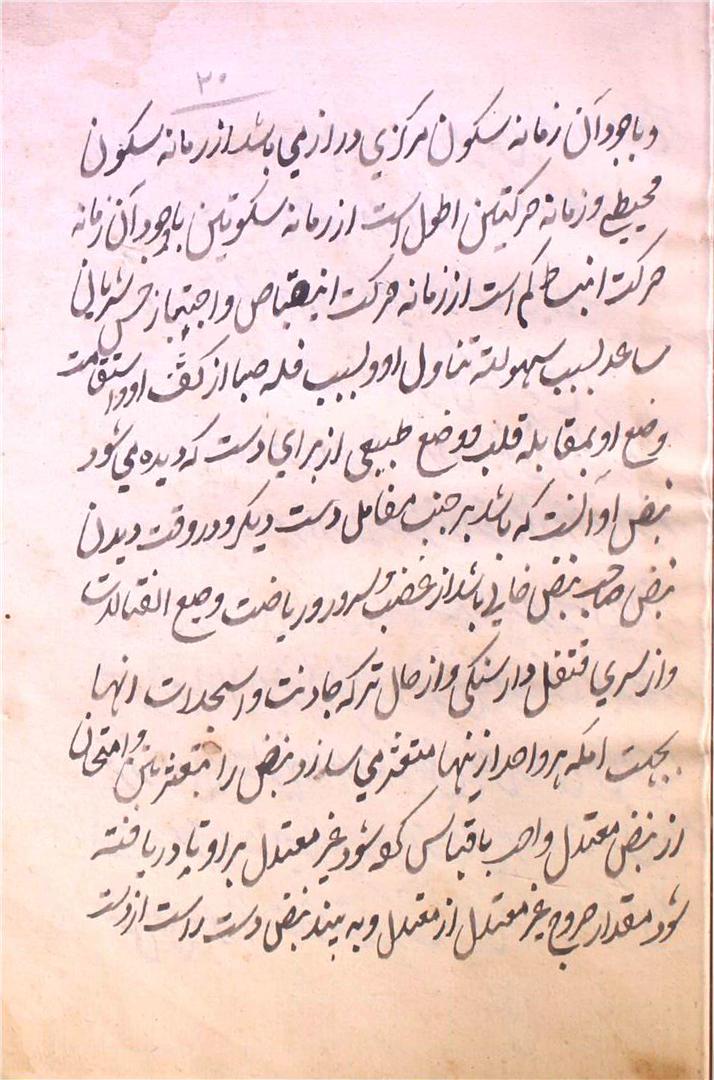 ۳۰
و باوجود آن زمانه سکون مرکزي دراز مي باشد از زمانه سکون
محیطي و زمانه حرکتین اطول است از زمانه سکونین باوجود آن زمانه
حرکت انبساط کم است از زمانه حرکت انقباض و اختیار جس شریانی
ساعد بسبب سهولته تناول او و بسبب قله از کشف او و استقامت
وضع او بمقابله قلب و وضع طبیعی از براي دست که دیده مي شود
نبض او آنست که باشد بر جنب مفاصل دست دیگر و در وقت دیدن
نبض صاحب نبض خالی باشد از غضب و سرور و ریاضت و جمیع انفعالات
و از سیري مثقل و از گرسنگی و از حال ترک عادات و انها
بجهت آنکه هر واحد ازینها متغیر مي سازد نبض را و امتحان
از نبض معتدل واجب با قیاس کرده شود غیر معتدل بر او تا دریافته
شود مقدار خروج غیر معتدل از معتدل و به بیند نبض دست راست از دست